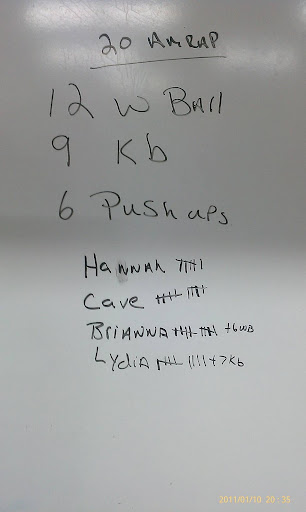 20 AMRAP
12 W Ball
9 Kb
6 Push ups
HANNAH 卌
Cave 卌 卌
BRIANNA 卌 卌 +6WB
Lydia 卌 |||| +7Kb
2011/01/10 20:35